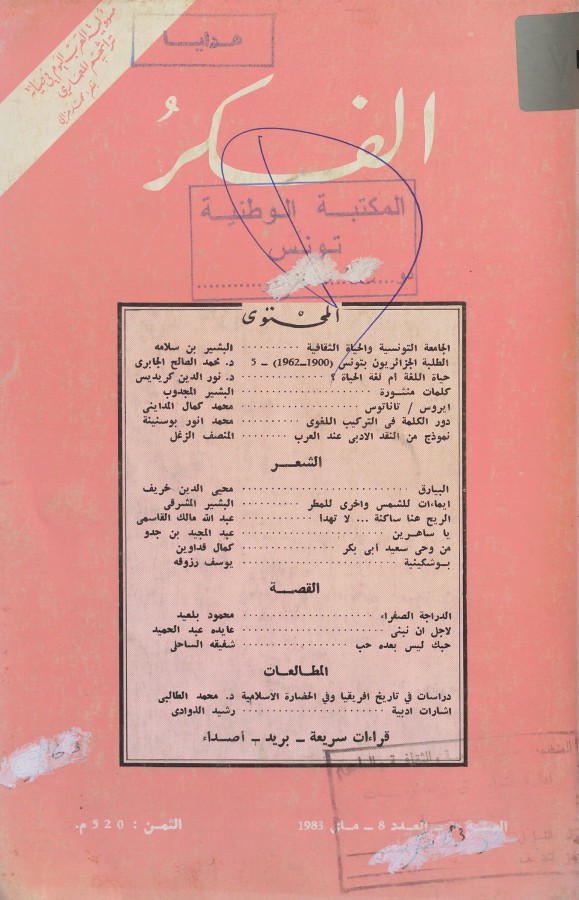 مسؤولية العرب اليوم في صيانة
تراثهم الحضاري
بقلم: محمد مزالي
هدايا
الفكر
المكتبة الوطنية
تونس
المحتوى
الجامعة التونسية والحياة الثقافية ·········· البشير بن سلامه
الطلبة الجزائريون بتونس (1900–1962) – 5 د. محمد الصالح الجابري
حياة اللغة أم لغة الحياة ؟ ·········· د. نور الدين كريديس
كلمات منثورة ·········· البشير المجدوب
ايروس / تاناتوس ·········· محمد كمال المدايني
دور الكلمة في التركيب اللغوى ·········· محمد انور بوسنينة
نموذج من النقد الادبى عند العرب ·········· المنصف الزغل
الشعر
البيارق ·········· محيى الدين خريف
ايماءات للشمس واخرى للمطر ·········· البشير المشرقى
الريح هنا ساكنة ... لا تهدأ ·········· عبد الله مالك القاسمى
يا ساهرين ·········· عبد المجيد بن جدو
من وحى سعيد أبى بكر ·········· كمال قداوين
بوشكينية ·········· يوسف رزوقه
القصة
الدراجة الصفراء ·········· محمود بلعيد
لاجل ان نبنى ·········· عايده عبد الحميد
حبك ليس بعده حب ·········· شفيقه الساحلى
المطالعات
دراسات في تاريخ افريقيا وفي الحضارة الاسلامية د. محمد الطالبى
اشارات ادبية ·········· رشيد الذوادى
قراءات سريعة – بريد – أصداء
العدد 8 – ماي 1983
الثمن : 520 م.